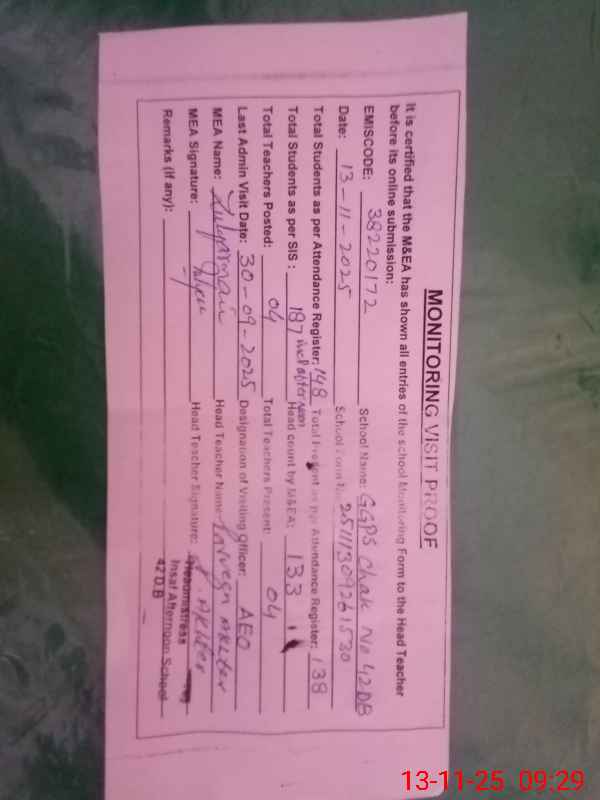 MONITORING VISIT PROOF
It is certified that the M&EA has shown all entries of the school Monitoring Form to the Head Teacher
before its online submission:
EMISCODE: 38220172 School Name: GGPS Chak No 42DB
Date: 13-11-2025 School Form No:
Total Students as per Attendance Register: 148 Total Present as per Attendance Register: 138
Total Students as per SIS : 187 incl afternoon Head count by M&EA: 133
Total Teachers Posted: 04 Total Teachers Present: 04
Last Admin Visit Date: 30-09-2025 Designation of Visiting Officer: AEO
MEA Name: Head Teacher Name: Parveen Akhter
MEA Signature: Head Teacher Signature: P. Akhter
Remarks (if any):
Headmistress
Insaf Afternoon School
42 D.B
13-11-25 09:29